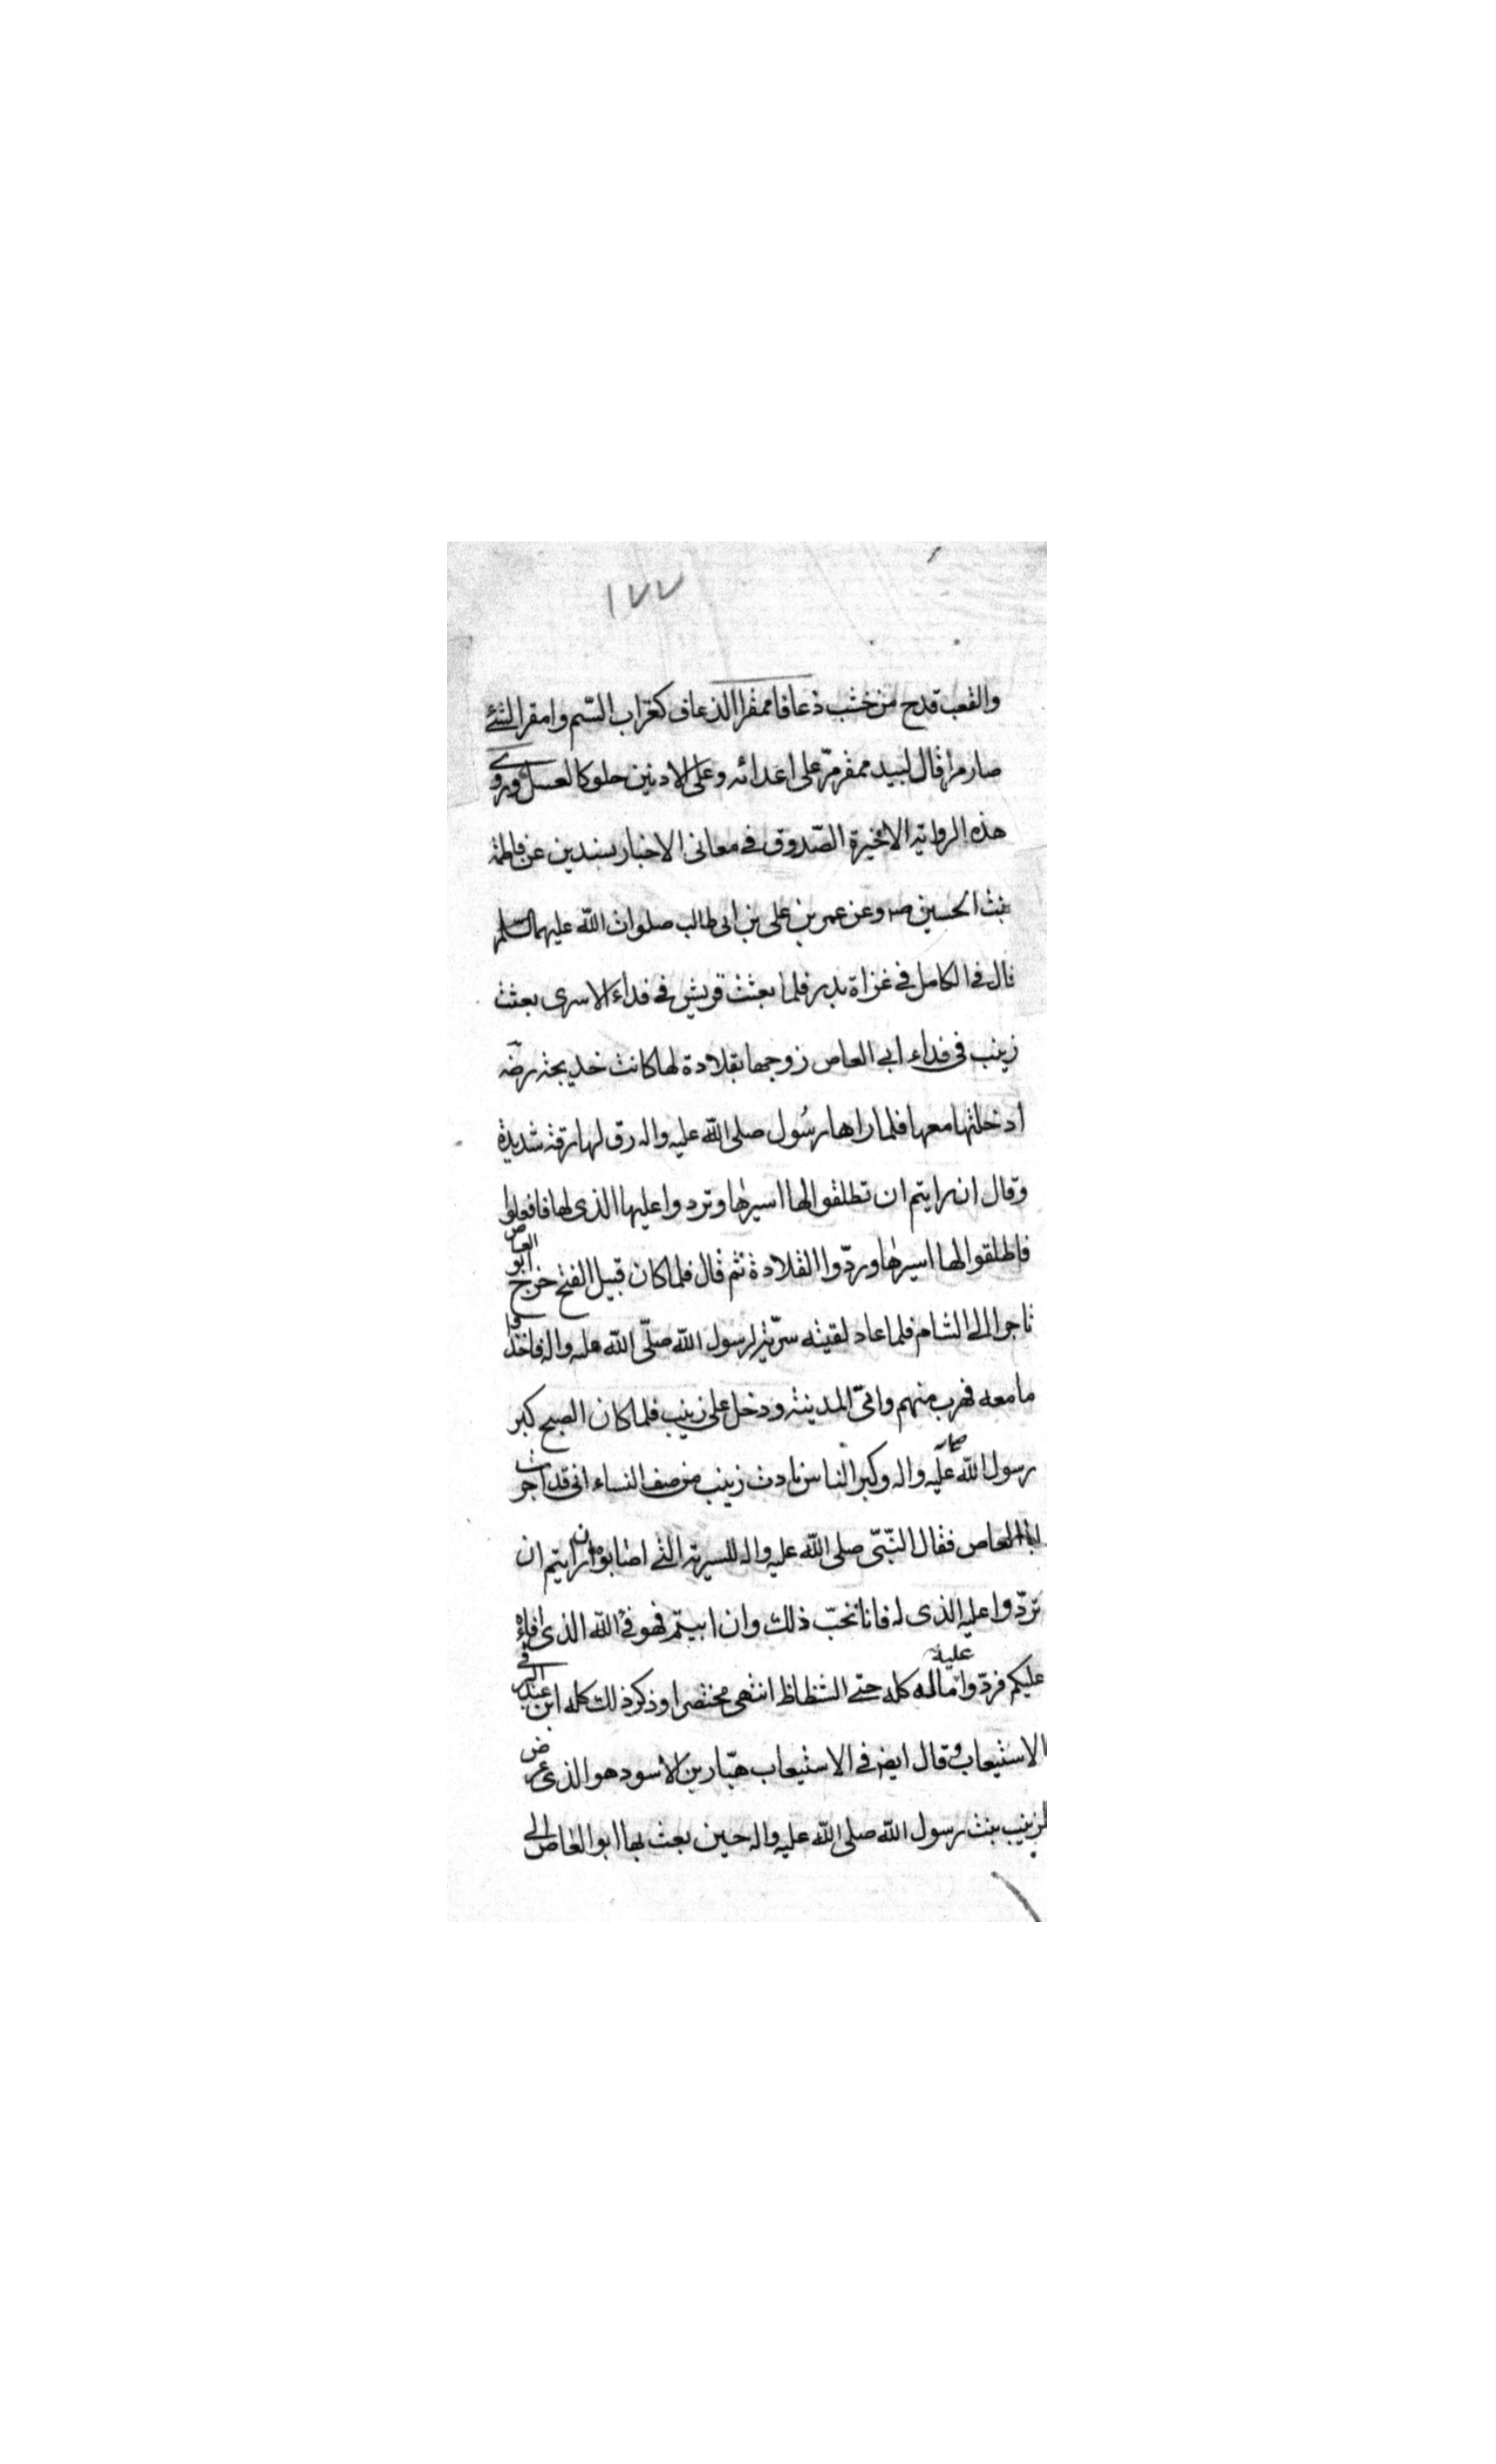 ١٧٧
والقعب قدح من خشب ذعافا ممقرا الذعاف كغراب السّم وامقر الشئ
صار مرا قال لبيد ممقر مرّ على اعدائه وعلى الادنين حلو كالعسل وروى
هذه الرواية الاخيرة الصّدوق في معانى الاخبار بسندين عن فاطمة
بنت الحسين ص وعن عمر بن على بن ابى طالب صلوات الله عليهم السّلم
قال في الكامل في غزاة بدر فلما بعثت قريش في فداء الاسرى بعثت
زينب في فداء ابي العاص زوجها بقلادة لها كانت خديجة رضه
ادخلتها معها فلما راها رسُول صلى الله عليه واله رق لها رقة شديدة
وقال ان رايتم ان تطلقوا لها اسيرها وتردوا عليها الذى لها فافعلوا
فاطلقوا لها اسيرها وردّوا القلادة ثم قال فلما كان قبيل الفتح خرج ابو العاص
تاجرا الى الشام فلما عاد لقيته سرّية لرسول الله صلّى الله عليه واله فاخذوا
ما معه فهرب منهم واتى المدينة ودخل على زينب فلما كان الصبح كبر
رسول الله صلى عليه واله وكبر الناس نادت زينب من صف النساء انى قد اجرت
ابا العاص فقال النّبىّ صلى الله عليه واله للسرية الذي اصابوه ان رايتم ان
تردّوا عليه الذى له فانا نحبّ ذلك وان ابيتم فهو فئ الله الذى افاءه
عليكم فردّوا عليه ماله كله حتى الشظاظ انتهى مختصرا وذكر ذلك كله ابن عبد البر في
الاستيعاب وقال ايضر في الاستيعاب هبّار بن الاسود هو الذى عرض
لزينب بنت رسول الله صلى الله عليه واله حين بعث بها ابو العاص الى